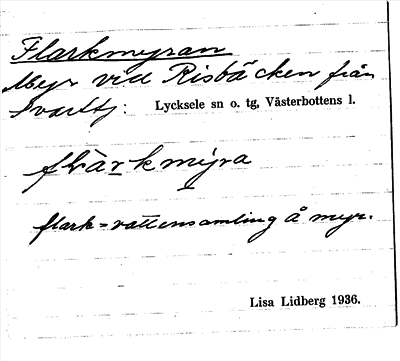 Flarkmyran
Myr vid Risbäcken från
Svarttj: Lycksele sn o. tg, Västerbottens l.
flàrkmyra
flark = vattensamling å myr.
Lisa Lidberg 1936.